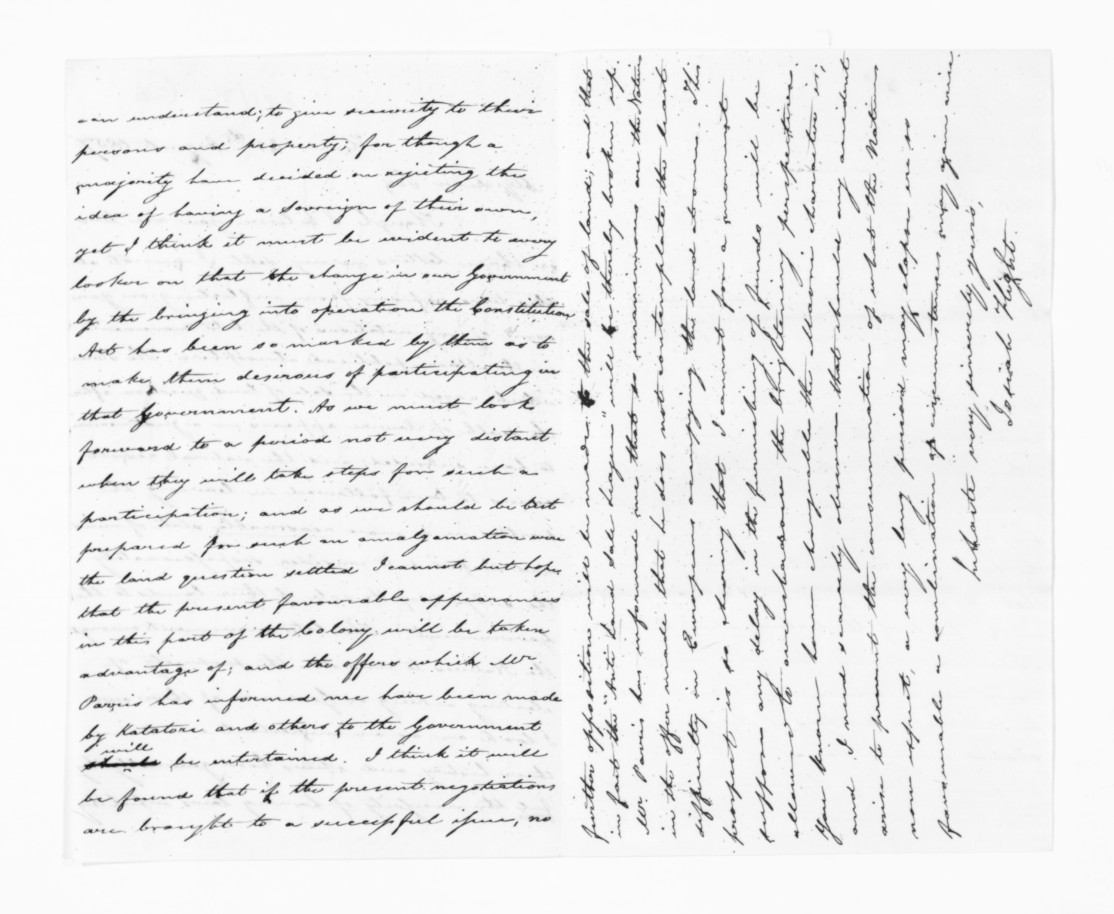 -an understand; to give security to their
persons and property; for though a
majority have decided on rejecting the
idea of having a Sovereign of their own,
yet I think it must be evident to every
looker on that the change in our Government
by the bringing into operation the Constitution
Act has been so marked by them as to
make them desirous of participating in
that Government. As we must look
forward to a period not very distant
when they will take steps for such a
participation; and as we should be best
prepared for such an amalgamation were
the land question settled I cannot but hope
that the present favourable appearances
in this part of the Colony will be taken
advantage of; and the offers which Mr
Parris has informed me have been made
by Katatore and others to the Government
will
be entertained. I think it will
be found that if the present negotiations
are brought to a successful issue, no
further opposition will be made to the sale of land; and that
in fact the "anti land sale league" will be thereby broken up.
Mr Parris has informed me that so unanimous are the Natives
in the offer made that he does not contemplate the least
difficulty in Europeans occupying the land at once. This
prospect is so cheering that I cannot for a moment
suppose any delay in the furnishing of funds will be
allowed to overshadow the brightening perspective.
You know how changeable the Maori character is;
and I need scarcely observe that should any incident
arise to prevent the consummation of what the Natives
now expect, a very long period may elapse ere so
favourable a combination of circumstances may again arise
believe very sincerely yours,
Josiah Flight.